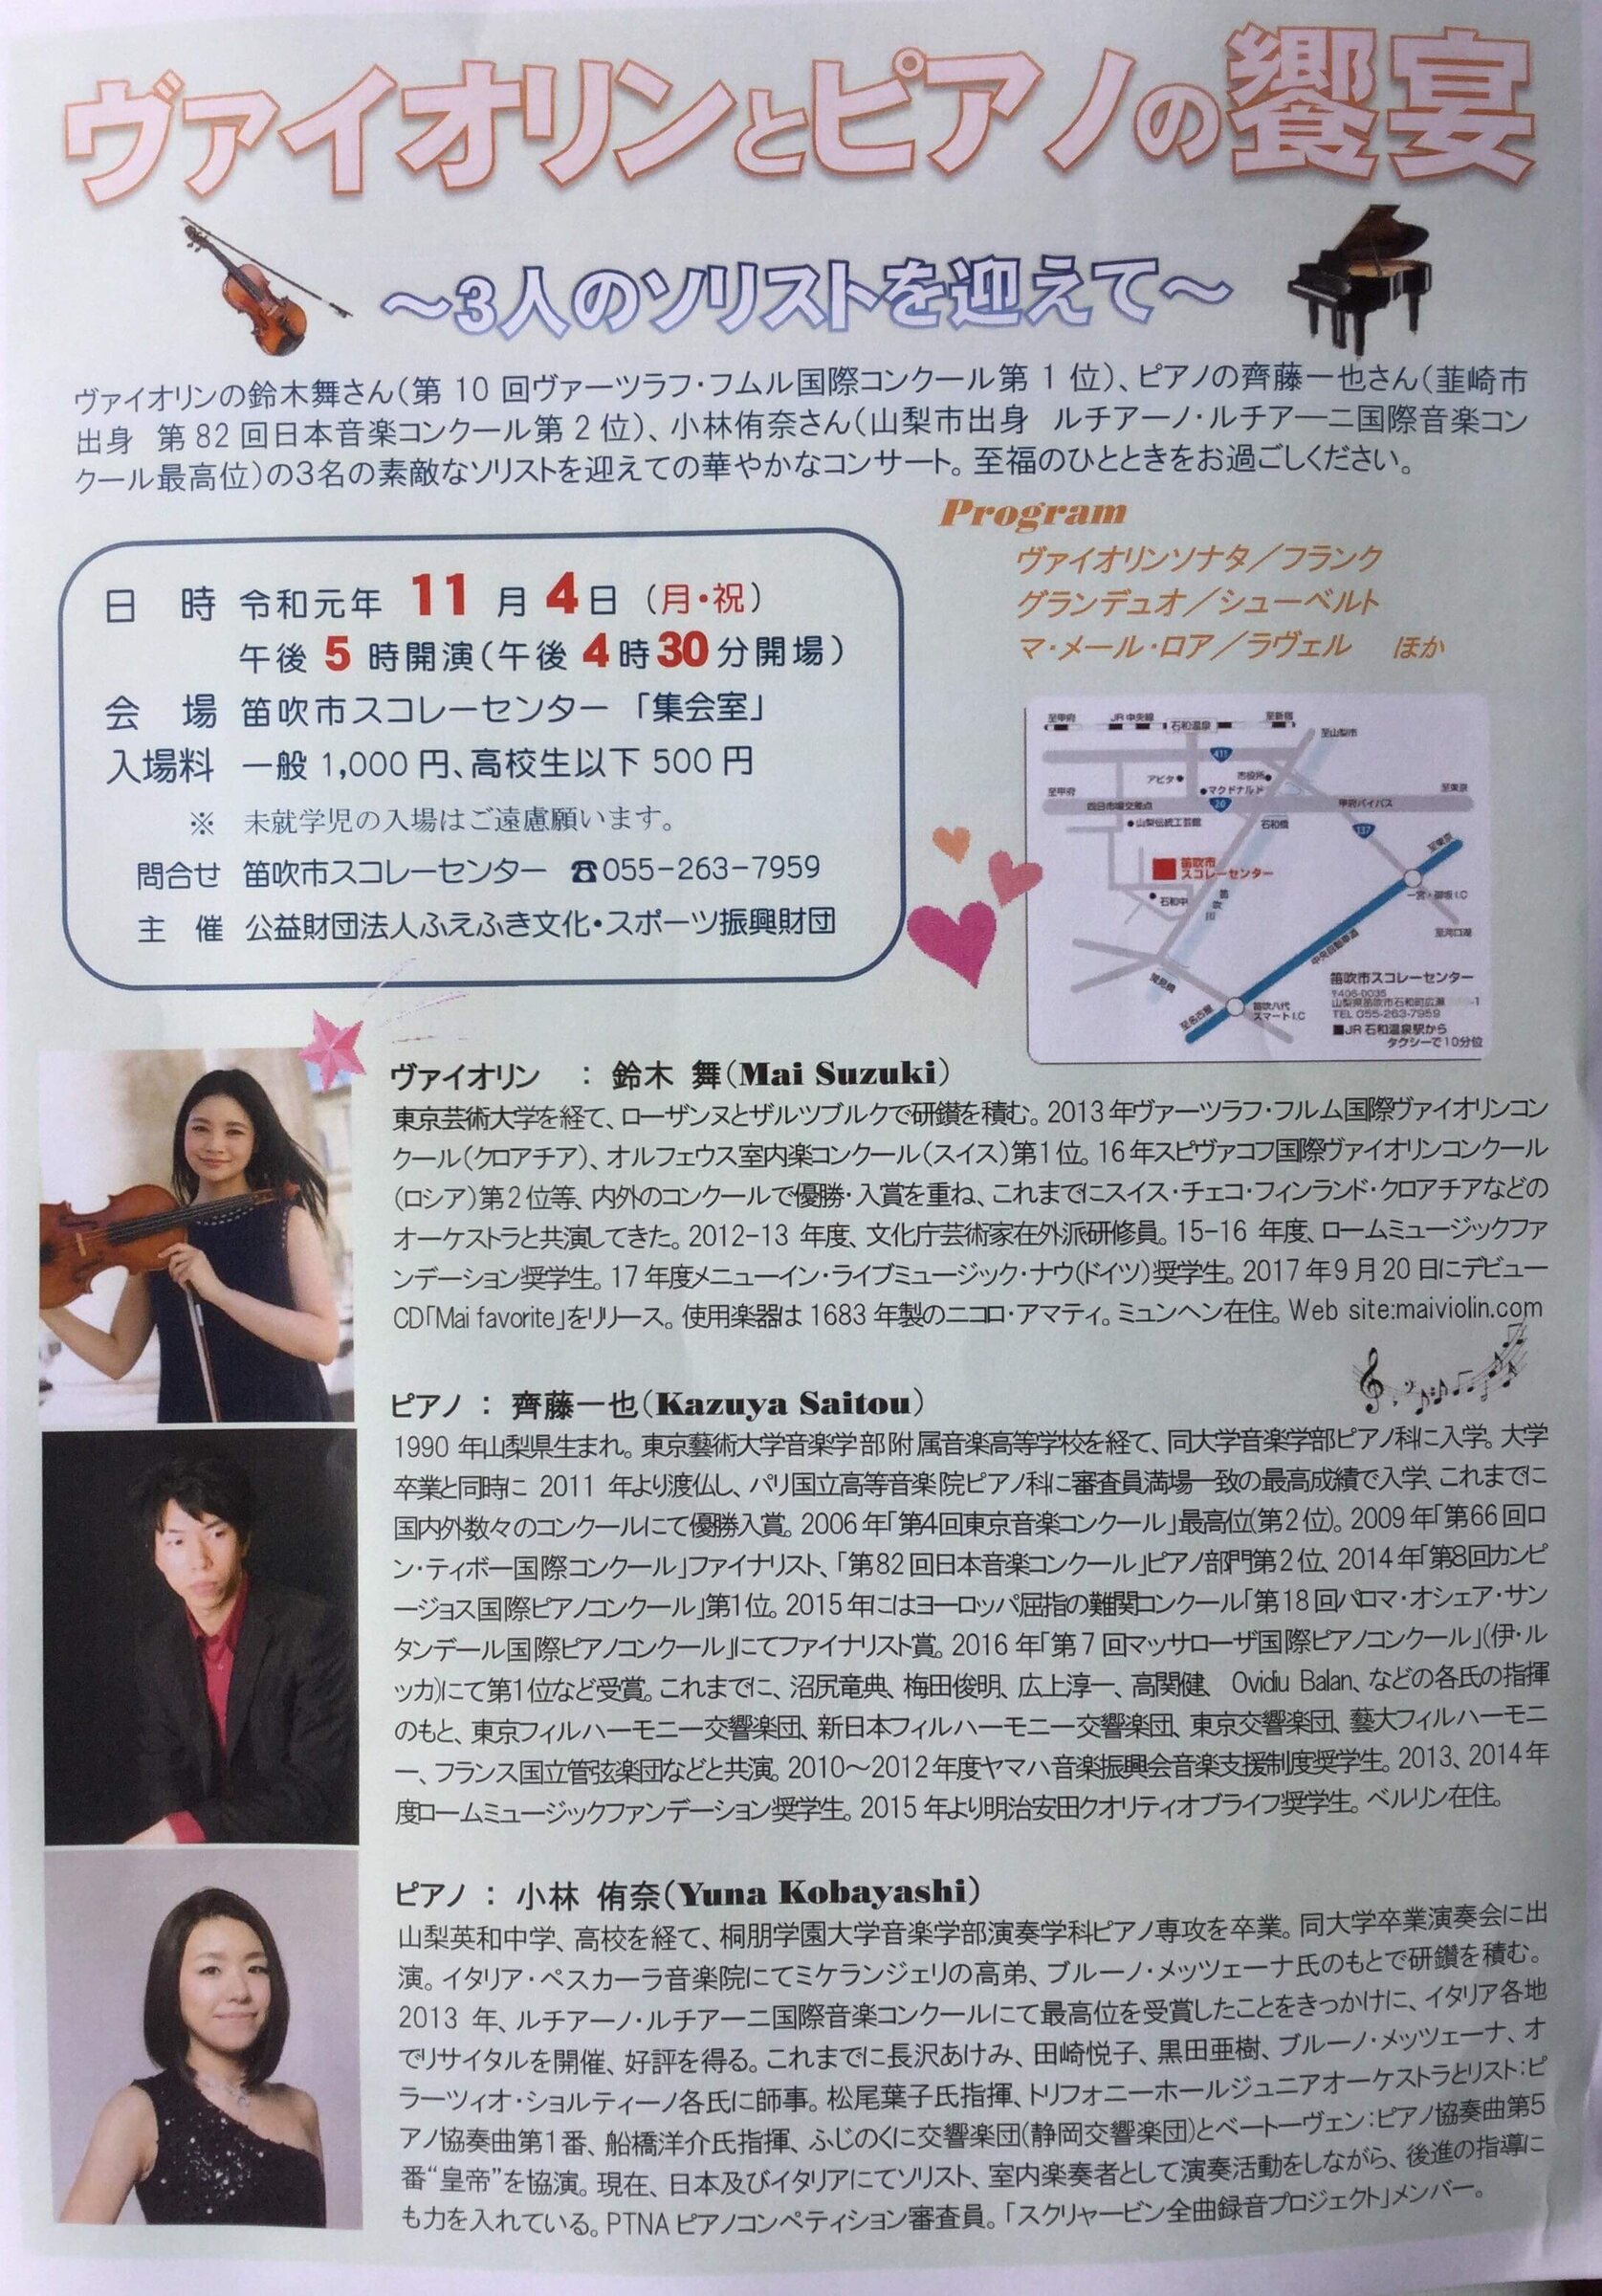 ヴァイオリンとピアノの饗宴
～3人のソリストを迎えて～
ヴァイオリンの鈴木舞さん(第 10 回ヴァーツラフ・フムル国際コンクール第 1 位)、ピアノの齊藤一也さん(韮崎市
出身 第 82 回日本音楽コンクール第 2 位)、小林侑奈さん(山梨市出身 ルチアーノ・ルチアーニ国際音楽コン
クール最高位)の3名の素敵なソリストを迎えての華やかなコンサート。至福のひとときをお過ごしください。
Program
ヴァイオリンソナタ／フランク
グランデュオ／シューベルト
マ・メール・ロア／ラヴェル ほか
日 時 令和元年 11 月 4日 (月・祝)
午後 5 時開演(午後 4時30分開場)
会 場 笛吹市スコレーセンター 「集会室」
入場料 一般 1,000 円、高校生以下 500 円
※ 未就学児の入場はご遠慮願います。
問合せ 笛吹市スコレーセンター ☎055-263-7959
主 催 公益財団法人ふえふき文化・スポーツ振興財団
至甲府 JR 中央線 石和温泉 至新宿
至山梨市
411
アピタ 市役所
マクドナルド
至甲府 20 甲府バイパス 至東京
四日市場交差点
山梨伝統工芸館 石和橋 137
至東京
笛吹市
スコレーセンター
石和中
笛吹川
一宮・御坂I.C
至河口湖
中央自動車道
笛吹八代
スマートI.C
至名古屋
笛吹市スコレーセンター
〒406-0035
山梨県笛吹市石和町広瀬 -1
TEL 055-263-7959
■JR 石和温泉駅から
タクシーで10分位
ヴァイオリン : 鈴木 舞(Mai Suzuki)
東京芸術大学を経て、ローザンヌとザルツブルクで研鑽を積む。2013年ヴァーツラフ・フルム国際ヴァイオリンコン
クール(クロアチア)、オルフェウス室内楽コンクール(スイス)第1位。16年スピヴァコフ国際ヴァイオリンコンクール
(ロシア)第2位等、内外のコンクールで優勝・入賞を重ね、これまでにスイス・チェコ・フィンランド・クロアチアなどの
オーケストラと共演してきた。2012-13 年度、文化庁芸術家在外派研修員。15-16 年度、ロームミュージックファ
ンデーション奨学生。17年度メニューイン・ライブミュージック・ナウ(ドイツ)奨学生。2017年9月20日にデビュー
CD「Mai favorite」をリリース。使用楽器は1683年製のニコロ・アマティ。ミュンヘン在住。Web site:maiviolin.com
ピアノ : 齊藤一也(Kazuya Saitou)
1990 年山梨県生まれ。東京藝術大学音楽学部附属音楽高等学校を経て、同大学音楽学部ピアノ科に入学。大学
卒業と同時に 2011 年より渡仏し、パリ国立高等音楽院ピアノ科に審査員満場一致の最高成績で入学、これまでに
国内外数々のコンクールにて優勝入賞。2006年「第4回東京音楽コンクール」最高位(第2位)。2009年「第66回ロ
ン・ティボー国際コンクール」ファイナリスト、「第82回日本音楽コンクール」ピアノ部門第2位、2014年「第8回カンピ
ージョス国際ピアノコンクール」第1位。2015年にはヨーロッパ屈指の難関コンクール「第18回パロマ・オシェア・サン
タンデール国際ピアノコンクール」にてファイナリスト賞。2016年「第7回マッサローザ国際ピアノコンクール」(伊・ル
ッカ)にて第1位など受賞。これまでに、沼尻竜典、梅田俊明、広上淳一、高関健、Ovidiu Balan、などの各氏の指揮
のもと、東京フィルハーモニー交響楽団、新日本フィルハーモニー交響楽団、東京交響楽団、藝大フィルハーモニ
ー、フランス国立管弦楽団などと共演。2010～2012年度ヤマハ音楽振興会音楽支援制度奨学生。2013、2014年
度ロームミュージックファンデーション奨学生。2015年より明治安田クオリティオブライフ奨学生。ベルリン在住。
ピアノ : 小林 侑奈(Yuna Kobayashi)
山梨英和中学、高校を経て、桐朋学園大学音楽学部演奏学科ピアノ専攻を卒業。同大学卒業演奏会に出
演。イタリア・ペスカーラ音楽院にてミケランジェリの高弟、ブルーノ・メッツェーナ氏のもとで研鑽を積む。
2013 年、ルチアーノ・ルチアーニ国際音楽コンクールにて最高位を受賞したことをきっかけに、イタリア各地
でリサイタルを開催、好評を得る。これまでに長沢あけみ、田崎悦子、黒田亜樹、ブルーノ・メッツェーナ、オ
ラーツィオ・ショルティーノ各氏に師事。松尾葉子氏指揮、トリフォニーホールジュニアオーケストラとリスト:ピ
アノ協奏曲第1番、船橋洋介氏指揮、ふじのくに交響楽団(静岡交響楽団)とベートーヴェン:ピアノ協奏曲第5
番“皇帝”を協演。現在、日本及びイタリアにてソリスト、室内楽奏者として演奏活動をしながら、後進の指導に
も力を入れている。PTNAピアノコンペティション審査員。「スクリャービン全曲録音プロジェクト」メンバー。